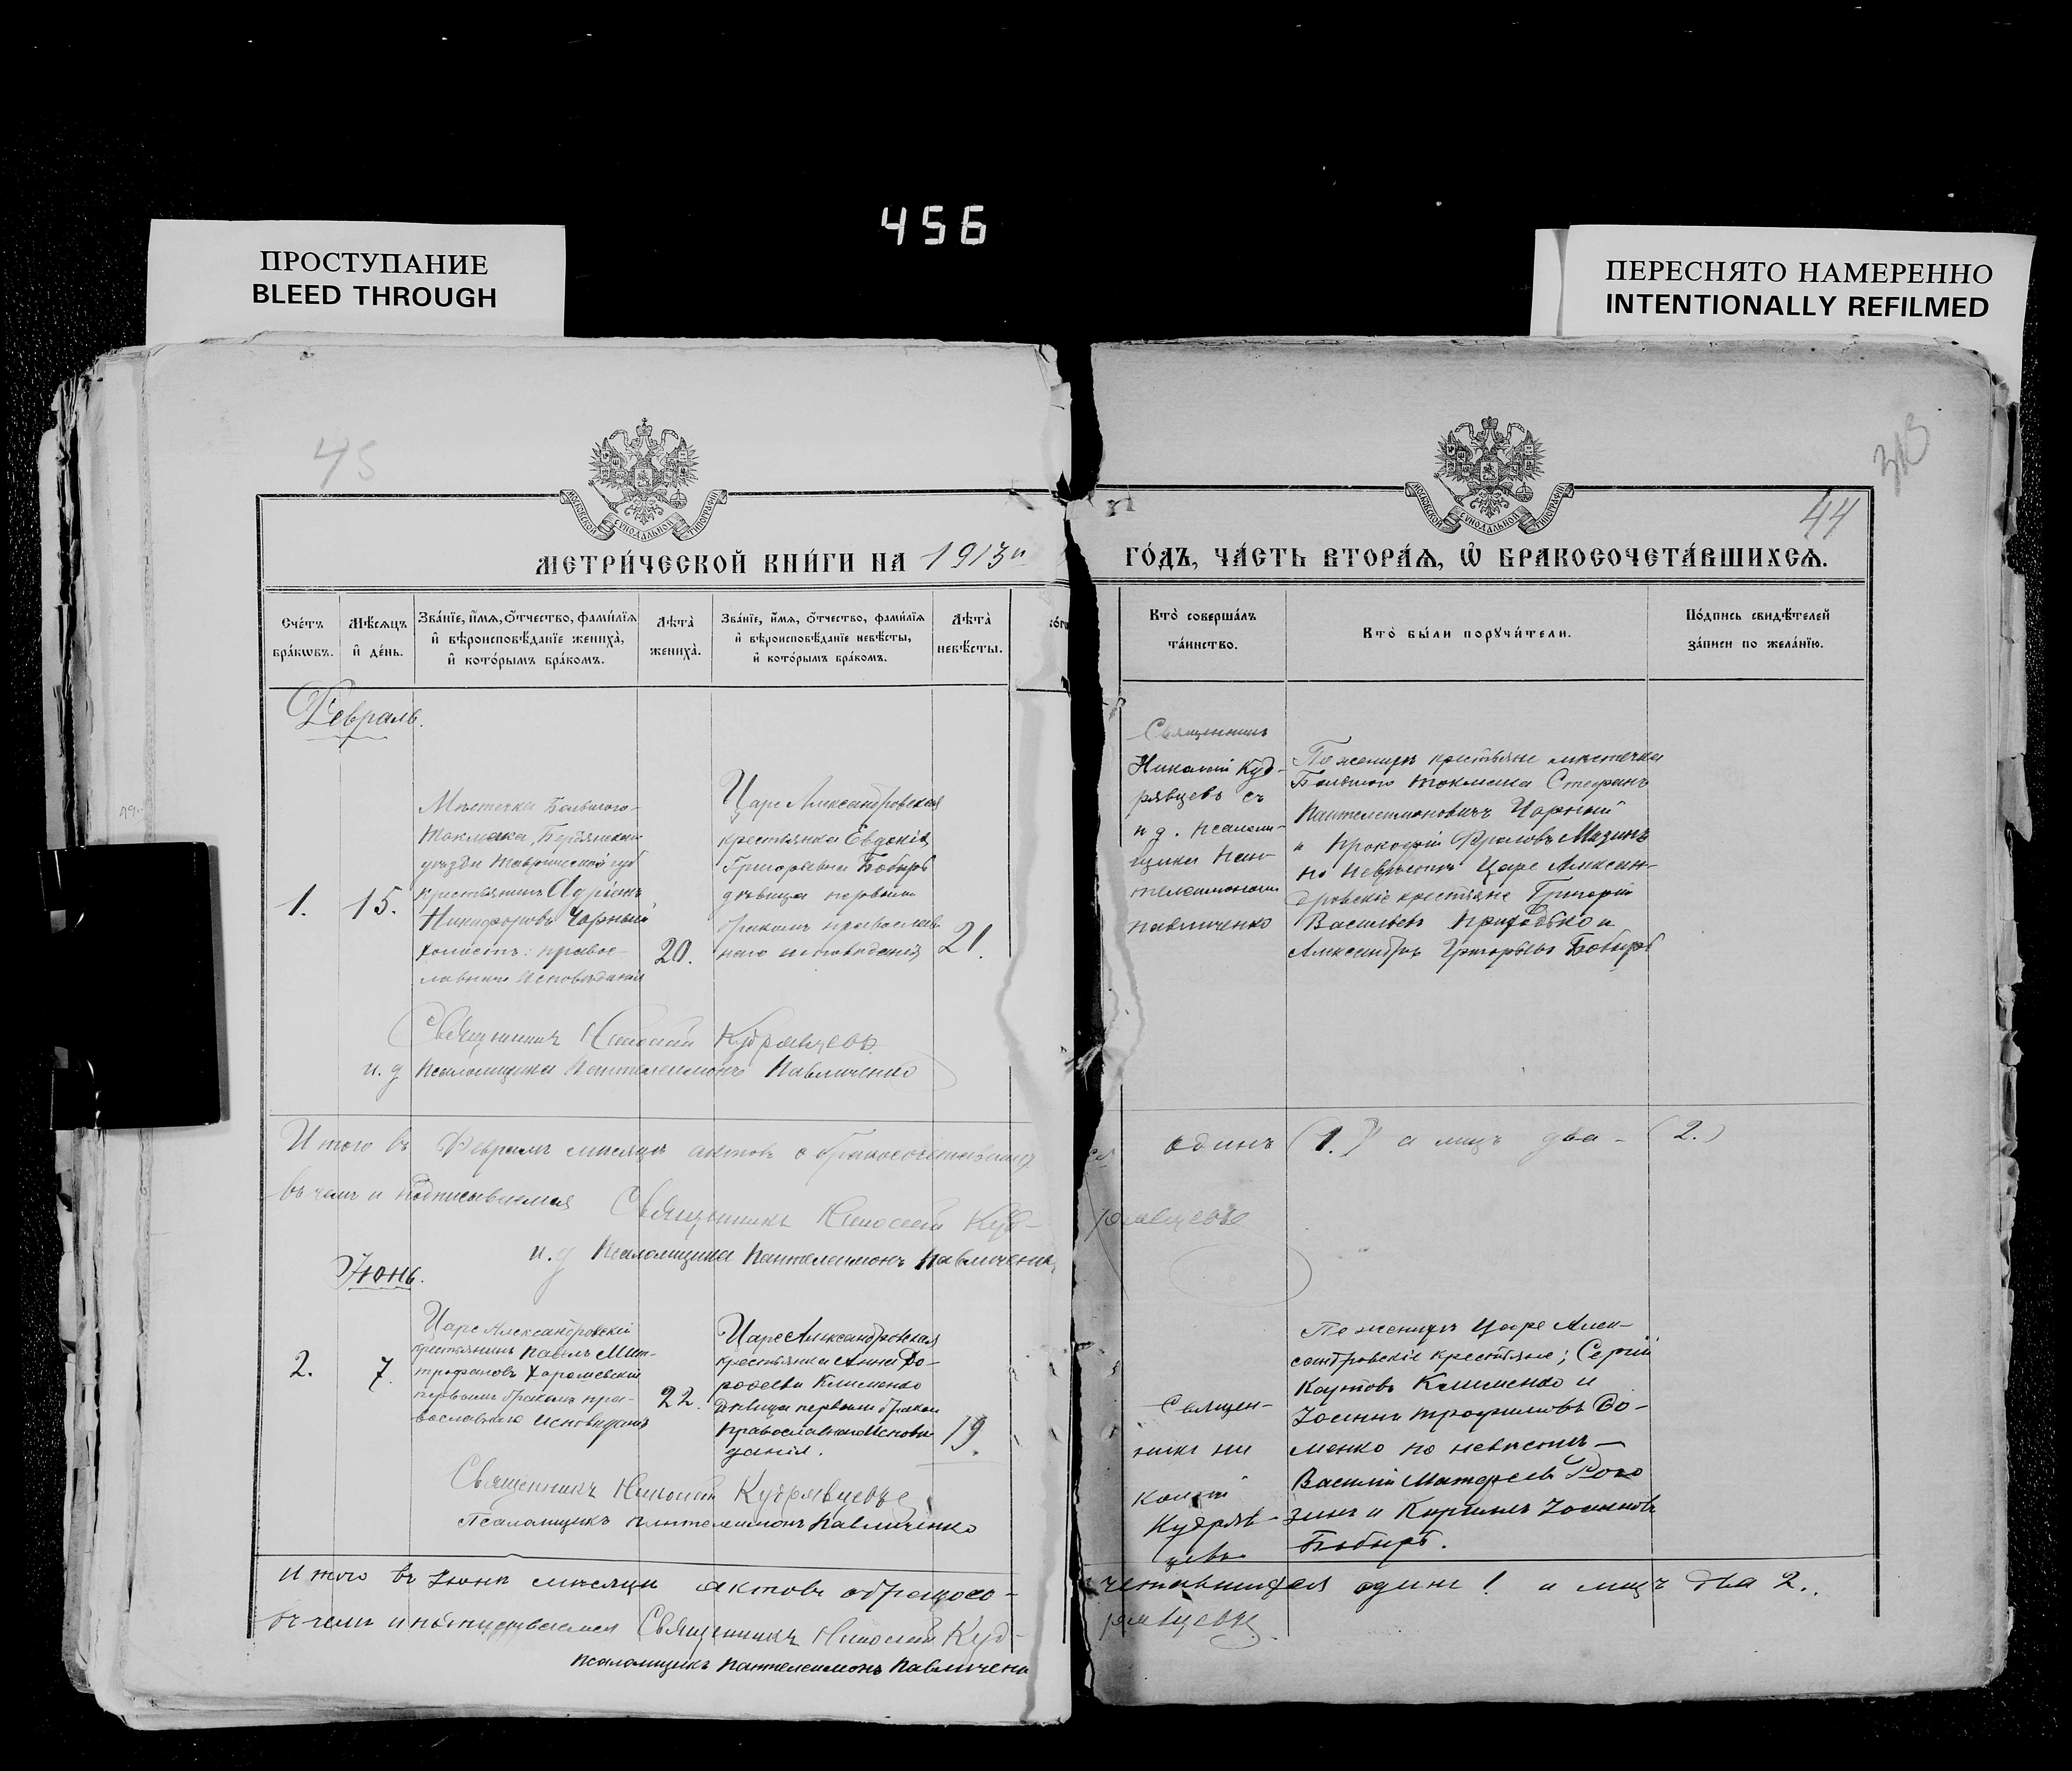 456
ПРОСТУПАНИЕ
BLEED THROUGH
ПЕРЕСНЯТО НАМЕРЕННО
INTENTIONALLY REFILMED
45
313
44
МОСКОВСКОЙ СѴНОДАЛЬНОЙ ТИПОГРАФІИ
МОСКОВСКОЙ СѴНОДАЛЬНОЙ ТИПОГРАФІИ
МЕТРИ́ЧЕСКОЙ КНИ́ГИ НА 1913й
ГО́ДЪ, ЧА́СТЬ ВТОРА́Ѧ, Ѡ҆ БРАКОСОЧЕТА́ВШИХСѦ.
Сче́тъ
бра́кѡвъ.
Мѣ́сяцъ
и҆ де́нь.
Зва́нїе, и҆́мѧ, ѻ҆́тчество, фами́лїѧ
и҆ вѣроисповѣ́данїе жениха̀,
и҆ кото́рымъ бра́комъ.
Лѣта̀
жениха̀.
Зва́нїе, и҆́мѧ, ѻ҆́тчество, фами́лїѧ
и҆ вѣроисповѣ́данїе невѣ́сты,
и҆ кото́рымъ бра́комъ.
Лѣта̀
невѣ́сты.
Кто̀ соверша́лъ
та́инство.
Кто̀ бы́ли порꙋчи́тели.
По́дпись свидѣ́телей
за́писи по жела́нїю.
Февраль.
1.
15.
Мѣстечка Большого-
Токмака, Бердянскаго
уѣзда Таврической губ
крестьянинъ Адріанъ
Никифоровъ Чорный
холостъ: правос-
лавнаго исповѣданія
20.
Царе Александровская
крестьянка Евдокія
Григорьевна Бобырь
дѣвица первымъ
бракомъ православ-
наго исповѣданія
21.
Священникъ
Николай Куд-
рявцевъ съ
и д. псалом-
щика Пан-
телеимономъ
Павличенко
По женихѣ крестьяне мѣстечка
Большого Токмака Стефанъ
Пантелеимоновичъ Чорный
и Прокофій Фроловъ Мазинъ
по невѣстѣ Царе Алексан-
дровскіе крестьяне Григорій
Васильевъ Приходько и
Александръ Григорьевъ Бобырь
Священникъ Николай Кудрявцевъ
и. д псаломщика Пантелеимонъ Павличенко
Итого въ Февралѣ мѣсяцѣ актовъ о бракосочетавших
ся одинъ (1.) а лицъ два - (2.)
въ чемъ и подписываемся Священникъ Николай Куд-
рявцевъ
и. д Псаломщика Пантелеимонъ Павличенк
Іюнь.
2.
7
Царе Александровскій
крестьянинъ Павелъ Мит-
трофановъ
первымъ бракомъ пра-
вославнаго исповѣданія
22.
Царе Александровская
крестьянка Анна До-
рофеева Клименко
дѣвица первымъ браком
православнаго исповѣ
данія.
19.
Священ-
никъ Ни
колай
Кудряв-
цевъ
По женихѣ Царе Алек-
сандровскіе крестьяне; Сергій
Карповъ Клименко и
Іоаннъ Трофимовъ До-
менко по невѣстѣ —
Василій Матфеевъ Рого
зинъ и Кириллъ Іоанновъ
Бобырь.
Священникъ Николай Кудрявцевъ
Псаломщикъ Пантелеимонъ Павличенко
Итого въ Іюнѣ мѣсяцѣ актовъ о бракосо-
четавшихся одинъ 1 а лицъ два 2.
въ чемъ и подписываемся Священникъ Николай Куд-
рявцевъ
Псаломщикъ Пантелеимонъ Павличенк